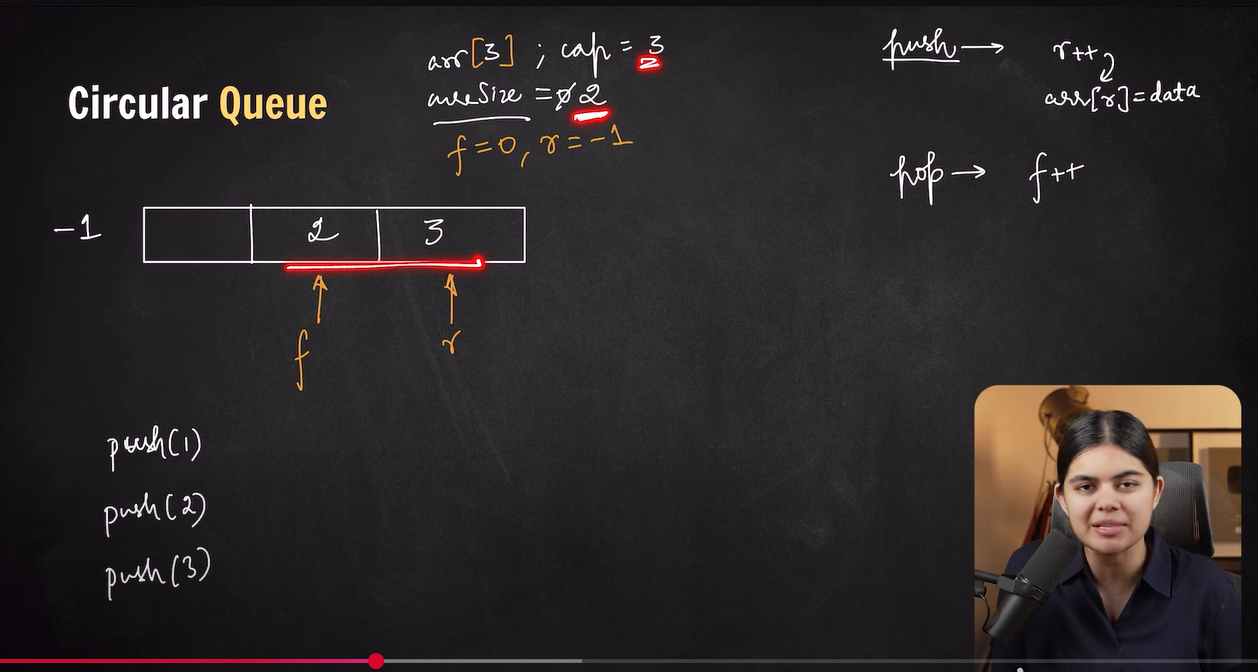 Circular Queue
arr[3] ; cap = 3
currSize = 0 2
f=0, r=-1
push → r++
arr[r]=data
pop → f++
-1
2 3
f r
push(1)
push(2)
push(3)